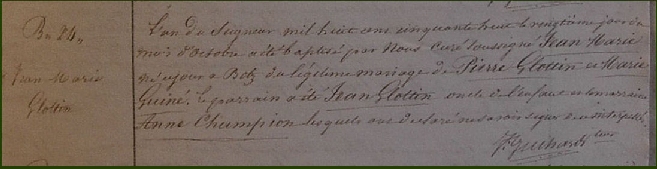 Bu 84.
Jean Marie
Glottin
L'an du Seigneur mil huit cent cinquante huit le vingtième jour du
mois d'Octobre a été baptisé par Nous Curé soussigné Jean Marie
né ce jour à Botz du légitime mariage de Pierre Glottin et Marie
Guiné. Le parrain a été Jean Glottin oncle de l'enfant et la marraine
Anne Champion lesquels ont déclaré ne savoir signer de ce interpellés
Guihard